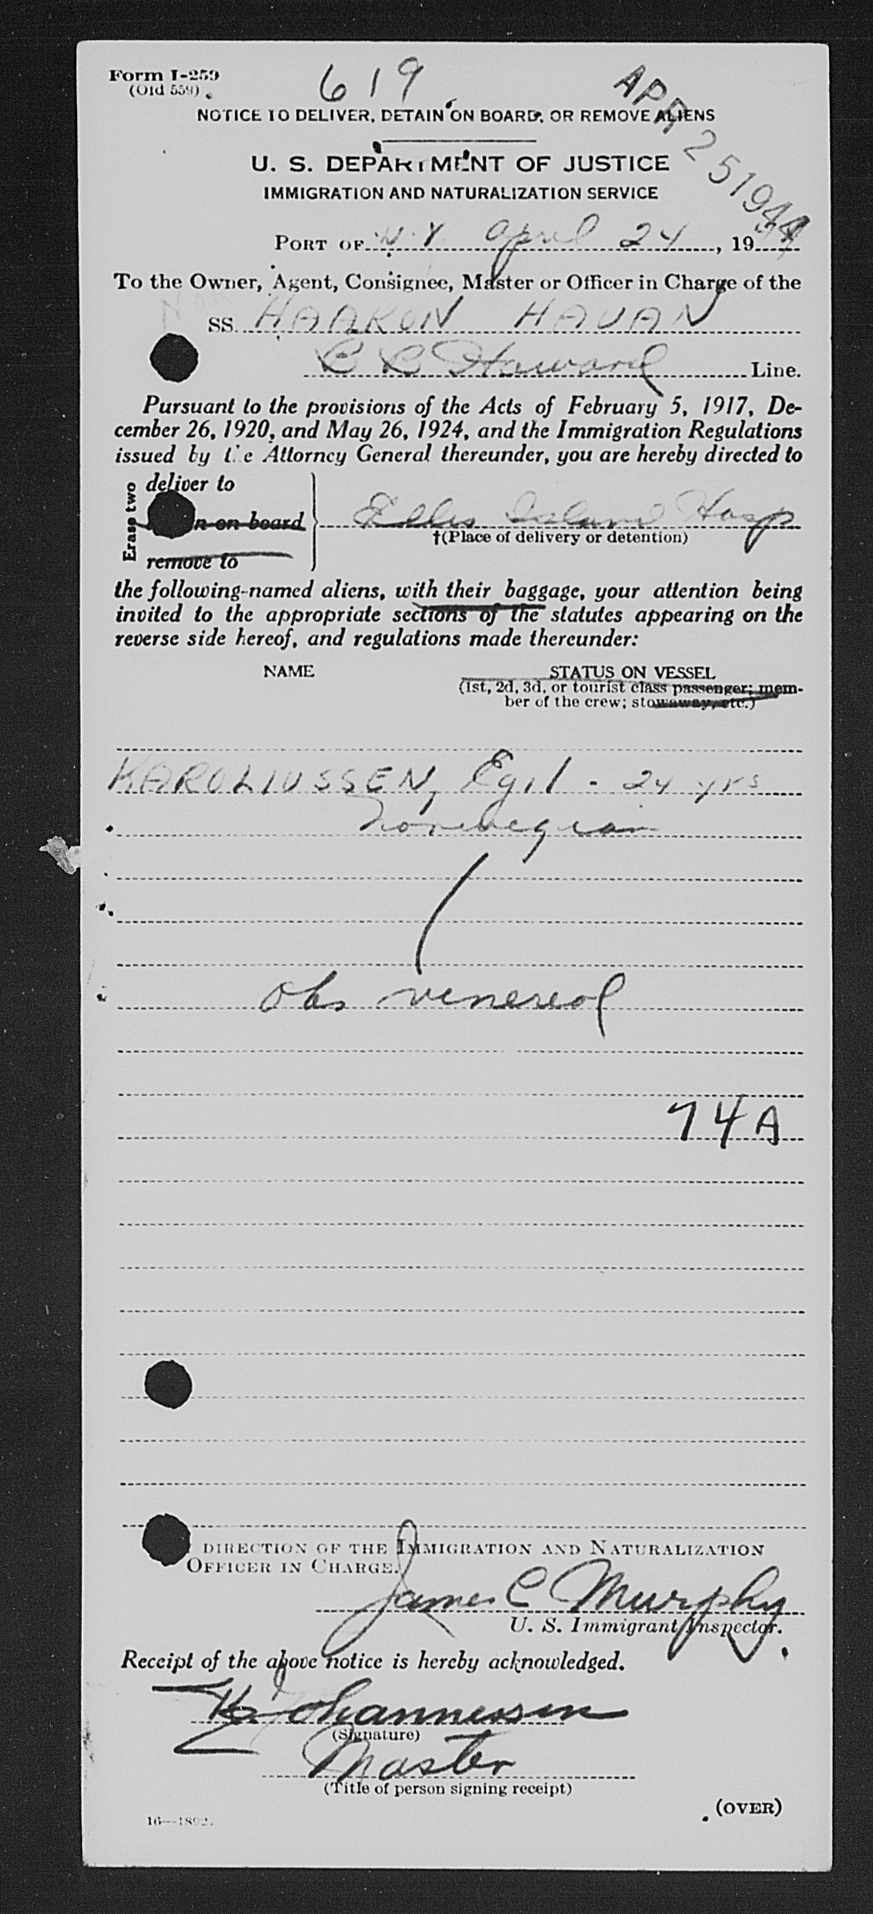 Form I-259
(Old 559)
619
APR 25 1944
NOTICE TO DELIVER, DETAIN ON BOARD, OR REMOVE ALIENS
U. S. DEPARTMENT OF JUSTICE
IMMIGRATION AND NATURALIZATION SERVICE
PORT OF N.Y. April 24, 1944
To the Owner, Agent, Consignee, Master or Officer in Charge of the
SS. HAAKON HAUAN
Line.
Pursuant to the provisions of the Acts of February 5, 1917, De-
cember 26, 1920, and May 26, 1924, and the Immigration Regulations
issued by the Attorney General thereunder, you are hereby directed to
Erase two
deliver to
n on board
Ellis Island Hosp
†(Place of delivery or detention)
remove to
the following-named aliens, with their baggage, your attention being
invited to the appropriate sections of the statutes appearing on the
reverse side hereof, and regulations made thereunder:
NAME STATUS ON VESSEL
(1st, 2d, 3d, or tourist class passenger; mem-
ber of the crew; stowaway, etc.)
KAROLIUSSEN, Egil - 24 yrs
Norwegian
Obs venereal
74A
DIRECTION OF THE IMMIGRATION AND NATURALIZATION
OFFICER IN CHARGE.
James C Murphy
U. S. Immigrant Inspector.
Receipt of the above notice is hereby acknowledged.
Johannessen
(Signature)
Master
(Title of person signing receipt)
(OVER)